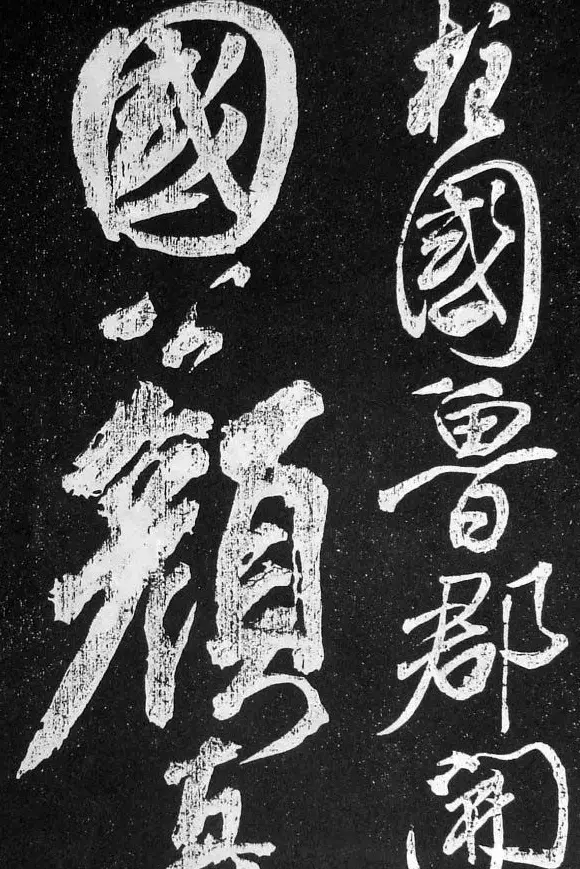 柱國魯郡開
國公顏真